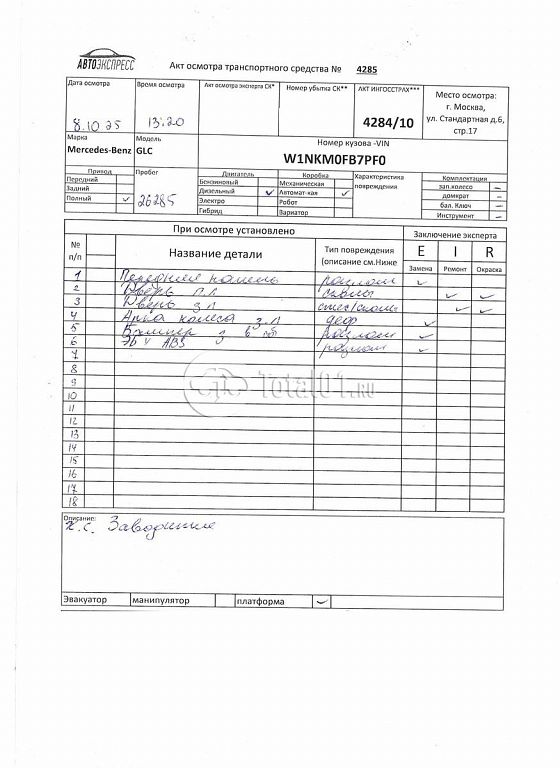 АВТОЭКСПРЕСС
Акт осмотра транспортного средства № 4285
Дата осмотра Время осмотра Акт осмотра эксперта СК* Номер убытка СК** АКТ ИНГОССТРАХ*** Место осмотра:
г. Москва,
ул. Стандартная д.6,
стр.17
8.10.25 13:20 4284/10
Марка Модель Номер кузова -VIN
Mercedes-Benz GLC W1NKM0FB7PF0
Привод Пробег Двигатель Коробка Характеристика повреждения Комплектации
Передний Бензиновый Механическая зап.колесо –
Задний Дизельный ✓ Автомат-кая ✓ домкрат –
Полный ✓ 26285 Электро Робот бал. Ключ –
Гибрид Вариатор Инструмент –
При осмотре установлено Заключение эксперта
№ п/п Название детали Тип повреждения (описание см.Ниже E I R
Замена Ремонт Окраска
1 ✓
2 Дверь п.л сколы ✓ ✓
3 Дверь з л ✓ ✓
4 Арка колеса з.л деф ✓
5 Бампер з разлом ✓
6 ABS разлом ✓
7
8
9
10
11
12
13
14
15
16
17
18
Total01.RU
Описание:
х.с. Заводится
Эвакуатор манипулятор платформа ✓